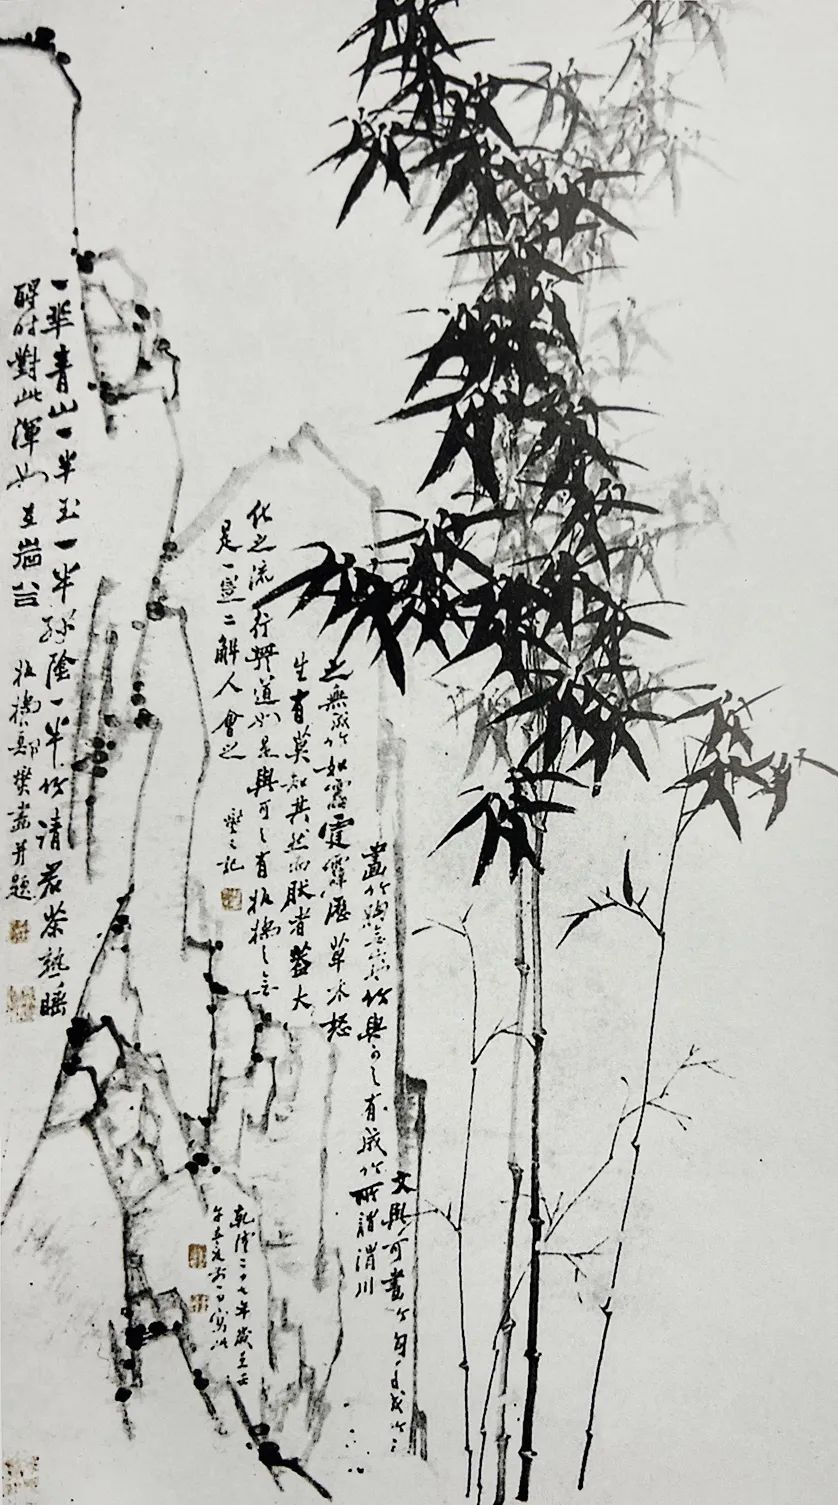 文與可畫竹胸有成竹
畫竹胸無成竹與可之有成竹所謂渭川
之無成竹如雷霆霹靂草木怒
生有莫知其然而然者蓋大
化之流行其道如是與可之有板橋之無
是一是二解人會之 燮又記
乾隆二十七年歲在壬
午
一半青山一半玉一半綠陰一半竹請君茶熟睡
醒時對此渾如在巖谷 板橋鄭燮畫并題